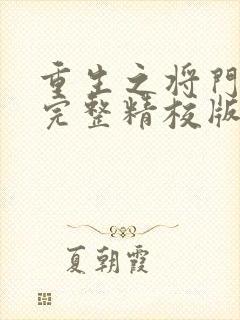 重生之将门
完整精校版
夏朝霞